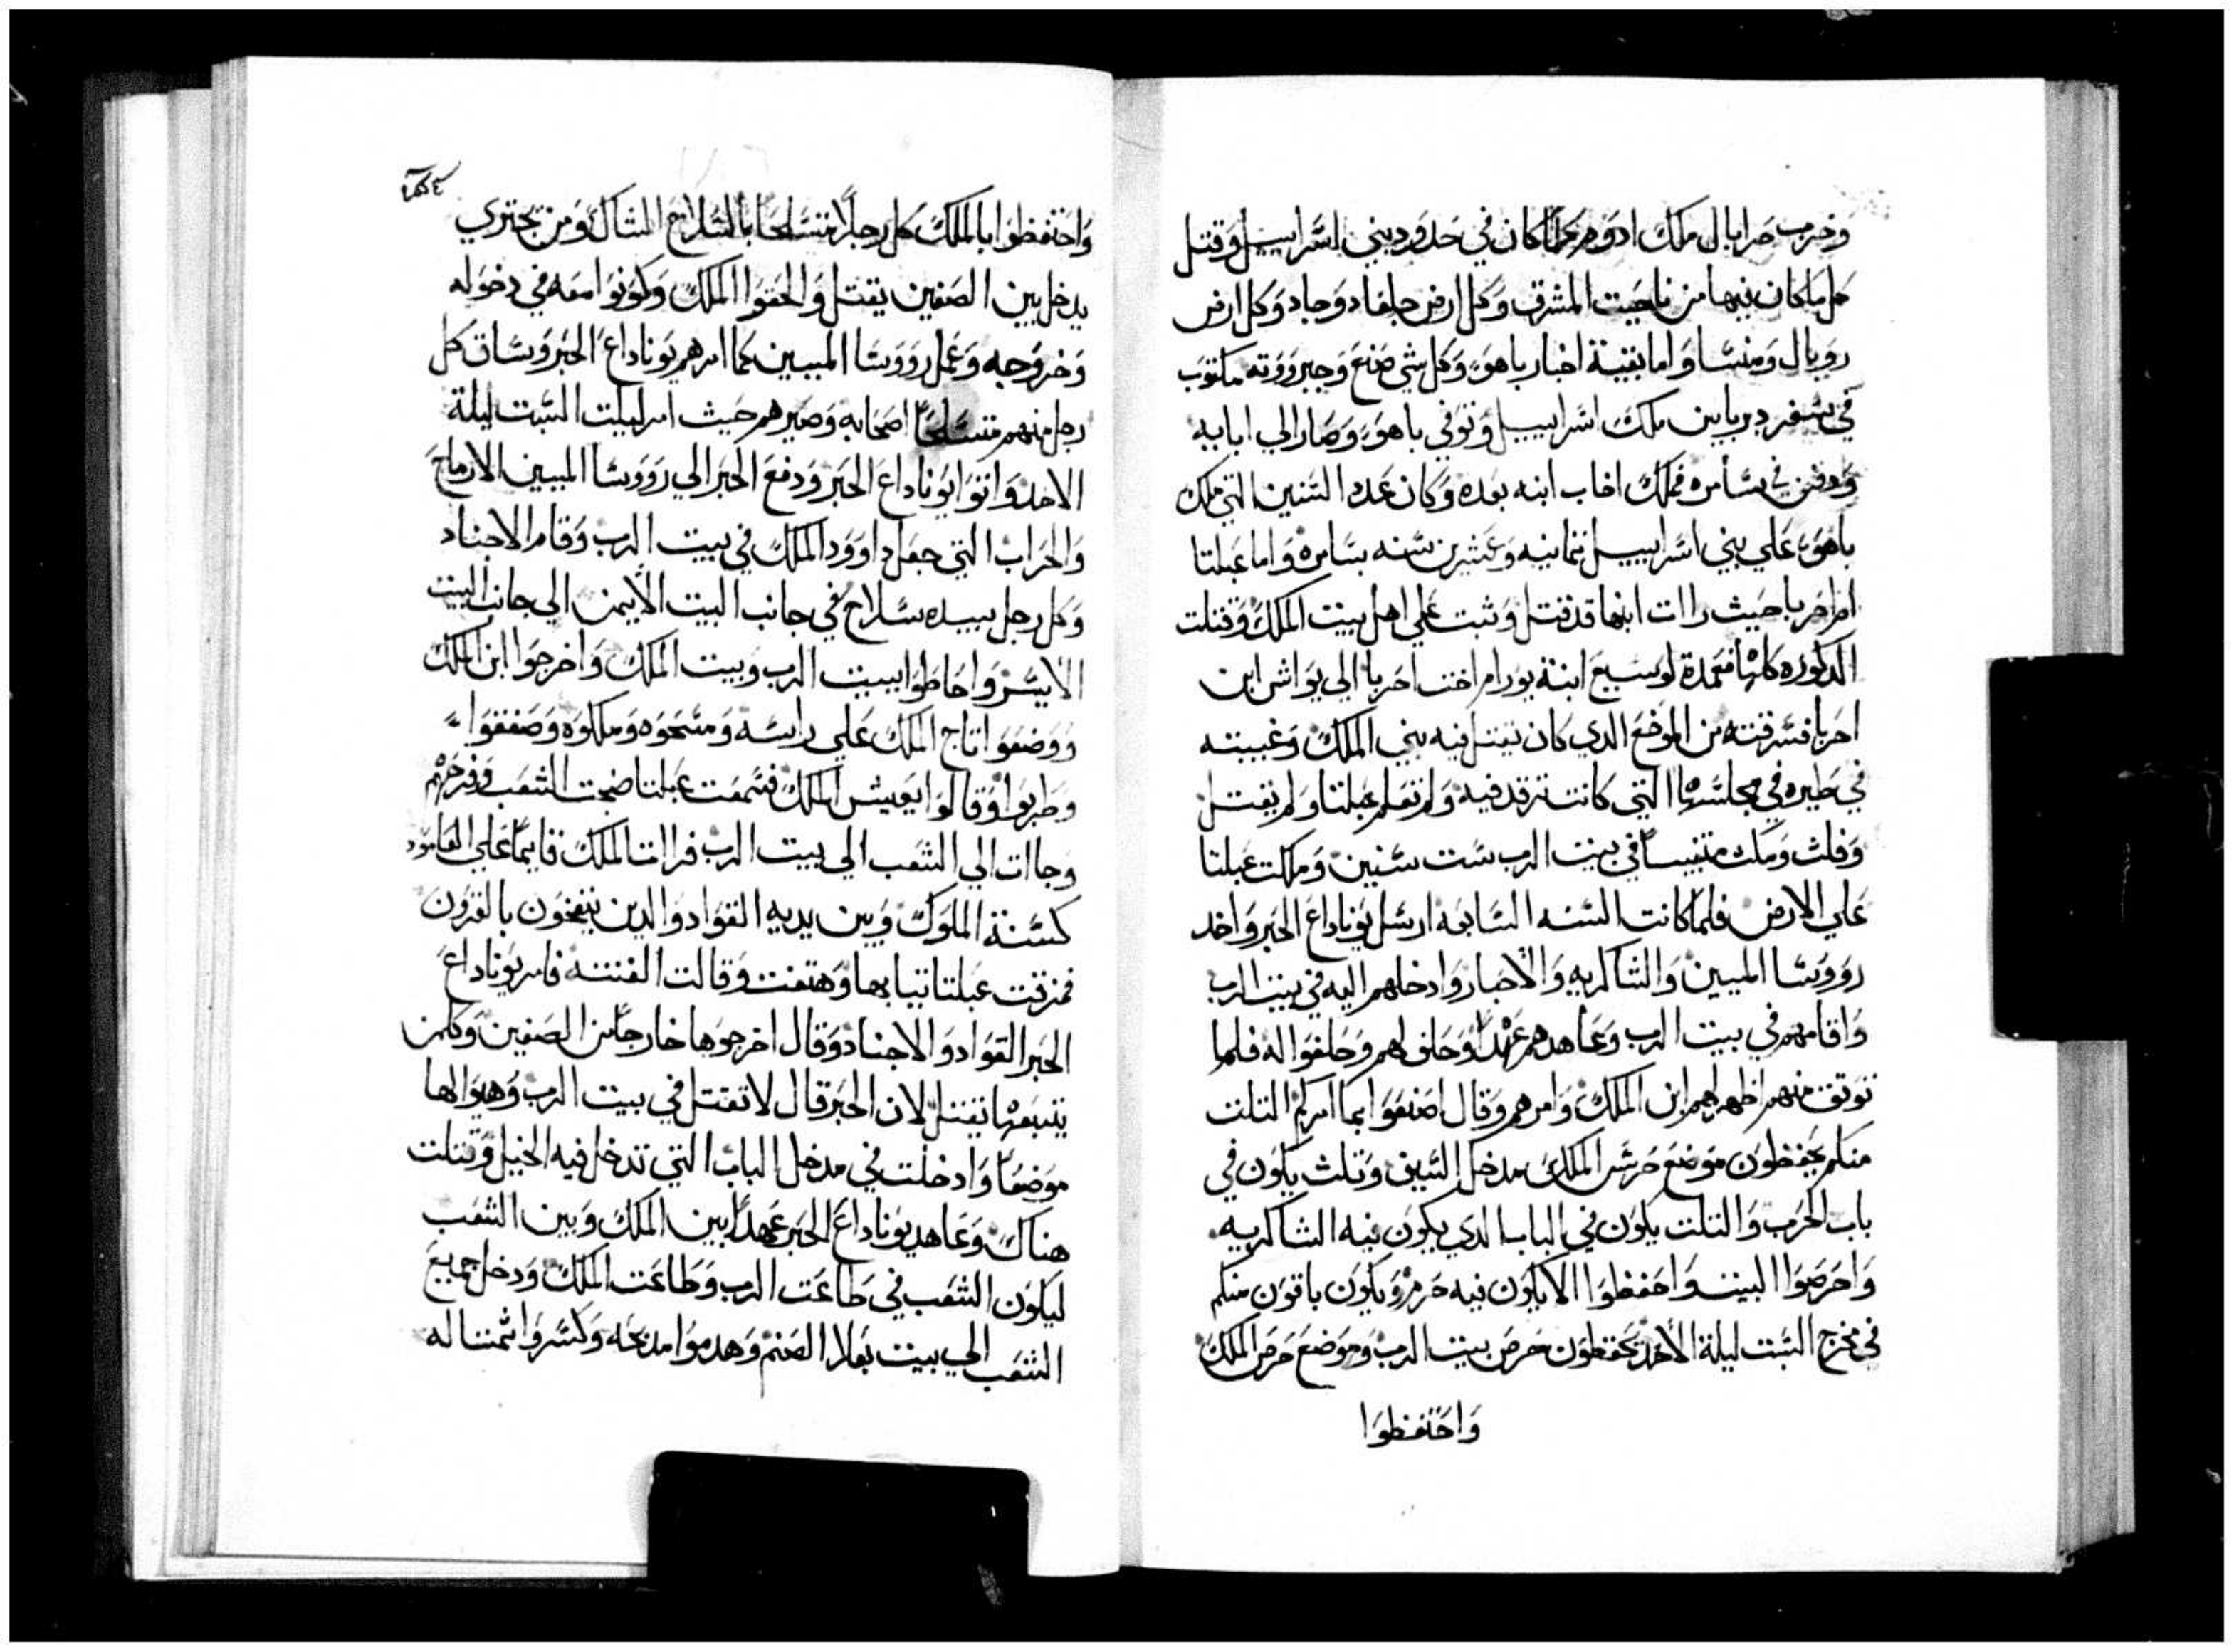 وخرب حزايال ملك ادوم كلما كان في حدود بني اسراييل وقتل
كل ما كان فيها من ناحيت المشرق وكل ارض جلعاد وجاد وكل ارض
روبال ومنسا واما بقية اخبار ياهو وكل شي صنع وجبرووته مكتوب
في سفر دبريامين ملك اسراييل وتوفي ياهو وصار الي ابايه
ودفن في سامره فملك اخاب ابنه بعده وكان عدد السنين التي ملك
ياهو علي بني اسراييل ثمانيه وعشرين سنه بسامره واما عبلتا
ام احزيا حيث راات ابنها قد قتل وثبت علي اهل بيت الملك وقتلت
الدكوره كلها فعمدة لوسيع ابنة يورام اخت احزيا الي يواش ابن
احزيا فسرقته من الموضع الدي كان يقتل فيه بني الملك وغيبته
في طيره في مجلسها التي كانت ترقد فيه ولم تعلم عبلتا ولم يقتل
وفلت ومكث متغيساً في بيت الرب ست سنين وملكت عبلتا
علي الارض فلما كانت السنه السابعه ارسل يوناداع الحبر واخد
رووسا الميين والشاكريه والاحبار وادخلهم اليه في بيت الرب
واقامهم في بيت الرب وعاهدهم عهداً وحلف لهم وحلفوا له فلما
توتق منهم اظهر لهم ابن الملك وامرهم وقال اصنعوا بما امركم التلت
منكم يحفظون موضع حرس الملك بمدخل السيف وتلث يكون في
باب الحرب والتلت يكون في الباب الدي يكون فيه الشاكرييه
واحرصوا البيت واحفظوا الا يكون فيه خرم ويكون باقون منكم
في مخرج السبت ليلة الأحد يحفظون حرص بيت الرب وموضع حرص الملك
واحتفظوا
واحتفظوا بالملك كل رجلاً متسلحاً بالسلاح الشاك ومن يجتري
يدخل بين الصفين يقتل والحقوا الملك وكونوا معه في دخوله
وخروجه وعمل رووسا الميين كما امرهم يوناداع الحبر وساق كل
رجل منهم متسلحاً اصحابه وصيرهم حيث امر لبيلت السبت ليلة
الاحد واتوا يوناداع الحبر ودفع الحبر الي رووسا الميين الارماح
والحراب التي جعل داوود الملك في بيت الرب وقام الاجناد
وكل رجل بيده سلاح في جانب البيت الأيمن الي جانب البيت
الأيسر واحاطوا ببيت الرب وبيت الملك واخرجوا ابن الملك
ووضعوا تاج الملك علي راسه ومسحوه وملكوه وصفقوا
وطربوا وقالوا يعيش الملك فسمعت عبلتا ضجت الشعب وفرحهم
وجاات الي الشعب الي بيت الرب فرات الملك قايماً علي العامود
كسنة الملوك وبين يديه القواد والدين ينفخون بالقرون
فمزقت عبلتا تيابها وهتفت وقالت الفتنه فامر يوناداع
الحبر القواد والاجناد وقال اخرجوها خارجاً من الصفين وكلمن
يتبعها يقتل لان الحبر قال لا تقتل في بيت الرب وهيوا لها
موضعاً وادخلت في مدخل الباب التي تدخل فيه الخيل وقتلت
هناك وعاهد يوناداع الحبر عهداً بين الملك وبين الشعب
ليكون الشعب في طاعت الرب وطاعت الملك ودخل جميع
الشعب الي بيت بعلا الصنم وهدموا مدبحه وكسروا تمتاله